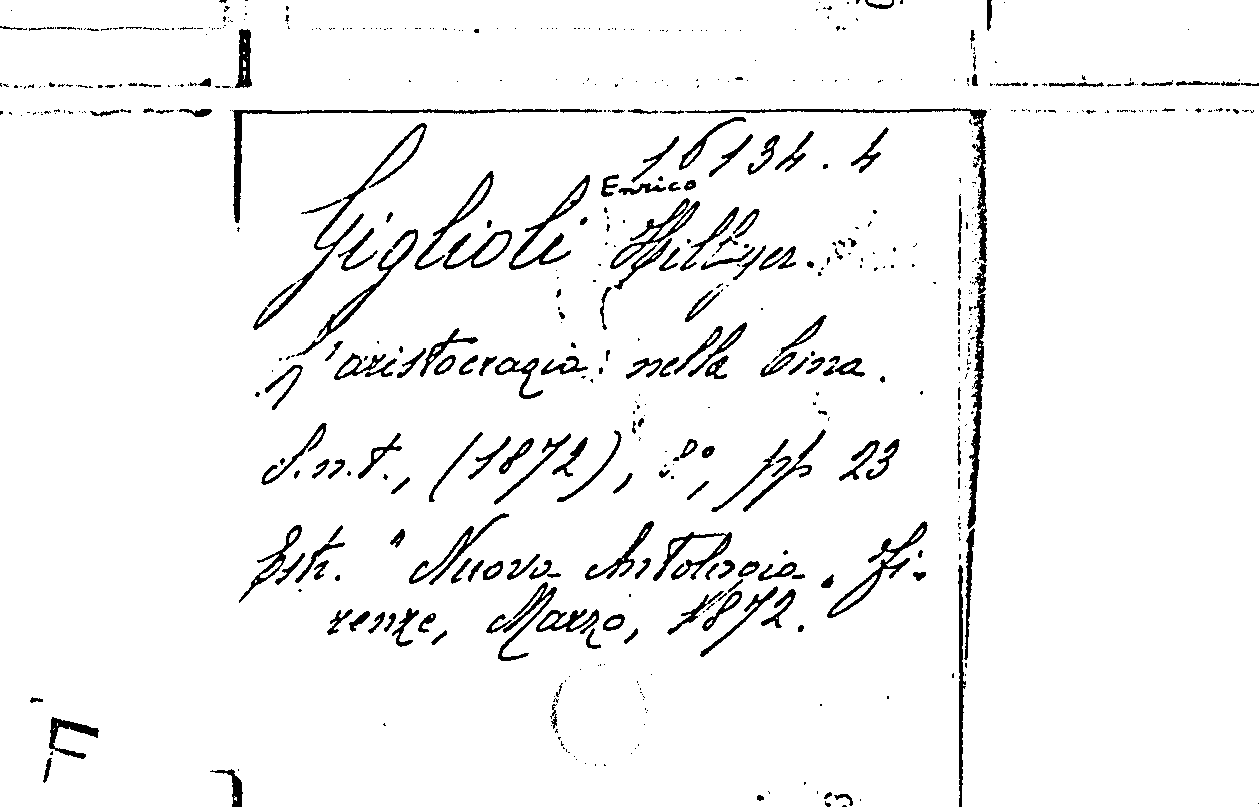 16134.4
Enrico
Giglioli Hillyer.
L'aristocrazia nella Cina.
S.n.t., (1872), 8°, pp 23
Estr. "Nuova Antologia„ Fi-
renze, Marzo, 1872.
F